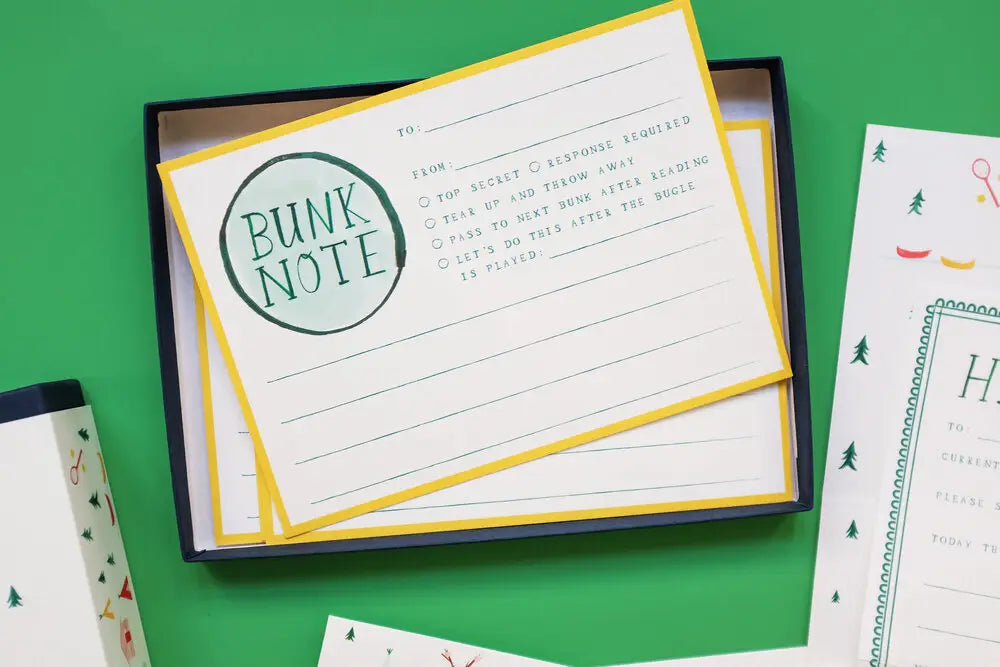 BUNK
NOTE
TO:
FROM:
TOP SECRET RESPONSE REQUIRED
TEAR UP AND THROW AWAY
PASS TO NEXT BUNK AFTER READING
LET'S DO THIS AFTER THE BUGLE
IS PLAYED:
TO:
PLEASE
TODAY